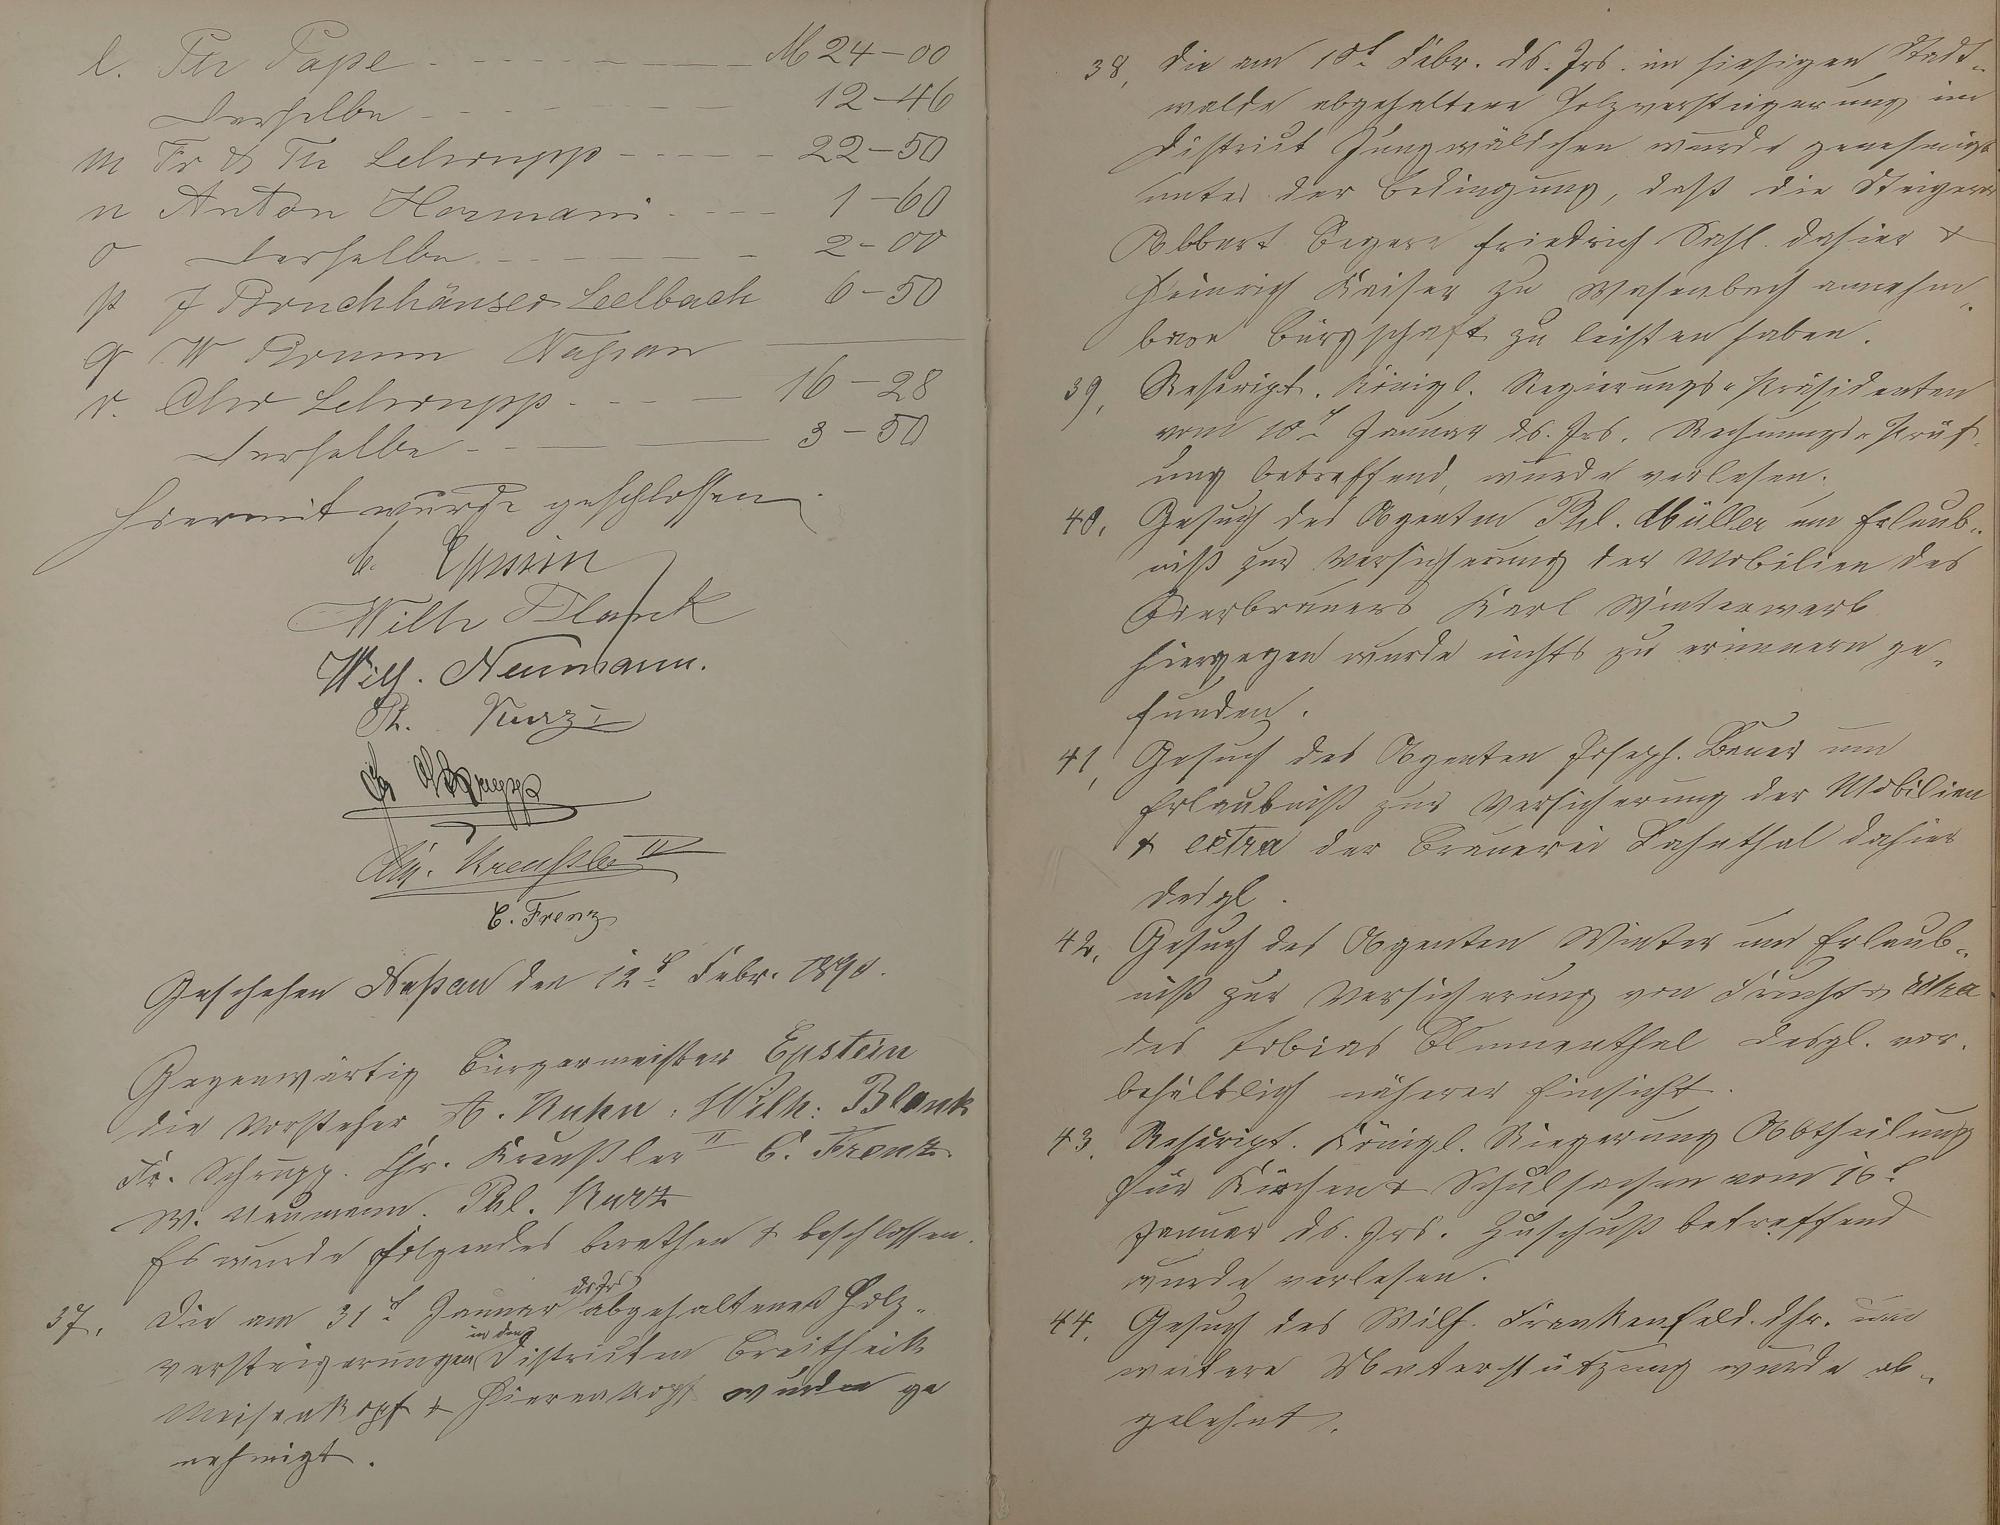 l. Ph Pape - - - - - - - M 24-00
Derselbe - - - - - - 12-46
m Fr & Th Schrupp - - - - - 22-50
n Anton Hermani - - - - 1-60
o Derselbe - - - - - - - 2-00
p J Bruchhäuser Seelbach 6-50
q W Bruun Nassau
r. Chr Schrupp - - - - 16-28
Derselbe - - - 3-50
Hiermit wurde geschlossen.
Epstein
Wilh Blank
Wilh. Neumann.
Ph. Kurz
Fr Schrupp
Chr. Kreußler II
C. Frenz
Geschehen Naßau den 12t Febr. 1890.
Gegenwärtig Bürgermeister Epstein
die Vorsteher A. Kuhn, Wilh: Blank
Fr. Schrupp. Chr. Kreußler II C. Frenz.
W. Neumann. Phl. Kurz
Es wurde folgendes berathen & beschlossen.
37. Die am 31t Januar ds Jrs abgehaltenen Holz-
versteigerungen in den Districten Breitheck
Meisenkopf & wurden ge
nehmigt.
38, Die am 10t Febr. ds. Jrs. im hiesigen Stadt-
walde abgehaltene Holzversteigerung im
District Jungwäldchen wurde genehmigt
unter der Bedingung, daß die Steigerer
Albert Friedrich Dahl dahier &
Heinrich Kaiser zu Wasenbach annehm-
bare Bürgschaft zu leisten haben.
39, Rescript. Königl. Regierungs-Präsidenten
vom 10t Januar ds. Jrs. Rechnungs-Prüf-
ung betreffend, wurde verlesen.
40, Gesuch des Agenten Phl. Müller um Erlaub-
niß zur Versicherung der Mobilien des
Bierbrauers Karl Winterwerb
hiergegen wurde nichts zu erinnern ge-
funden.
41, Gesuch des Agenten Joseph. Bauer um
Erlaubniß zur Versicherung der Mobilien
& extra der Brauerei Lahnthal dahier
desgl.
42, Gesuch des Agenten Winter um Erlaub-
niß zur Versicherung von Frucht & extra
des Tobias Blumenthal desgl. vor-
behältlich näherer Einsicht.
43, Rescript. Königl. Regierung Abtheilung
für Kirchen & Schulsachen vom 16t
Januar ds. Jrs. Zuschuß betreffend
wurde verlesen.
44. Gesuch des Wilh. Frankenfeld. dhr. um
weitere Unterstützung wurde ab-
gelehnt.